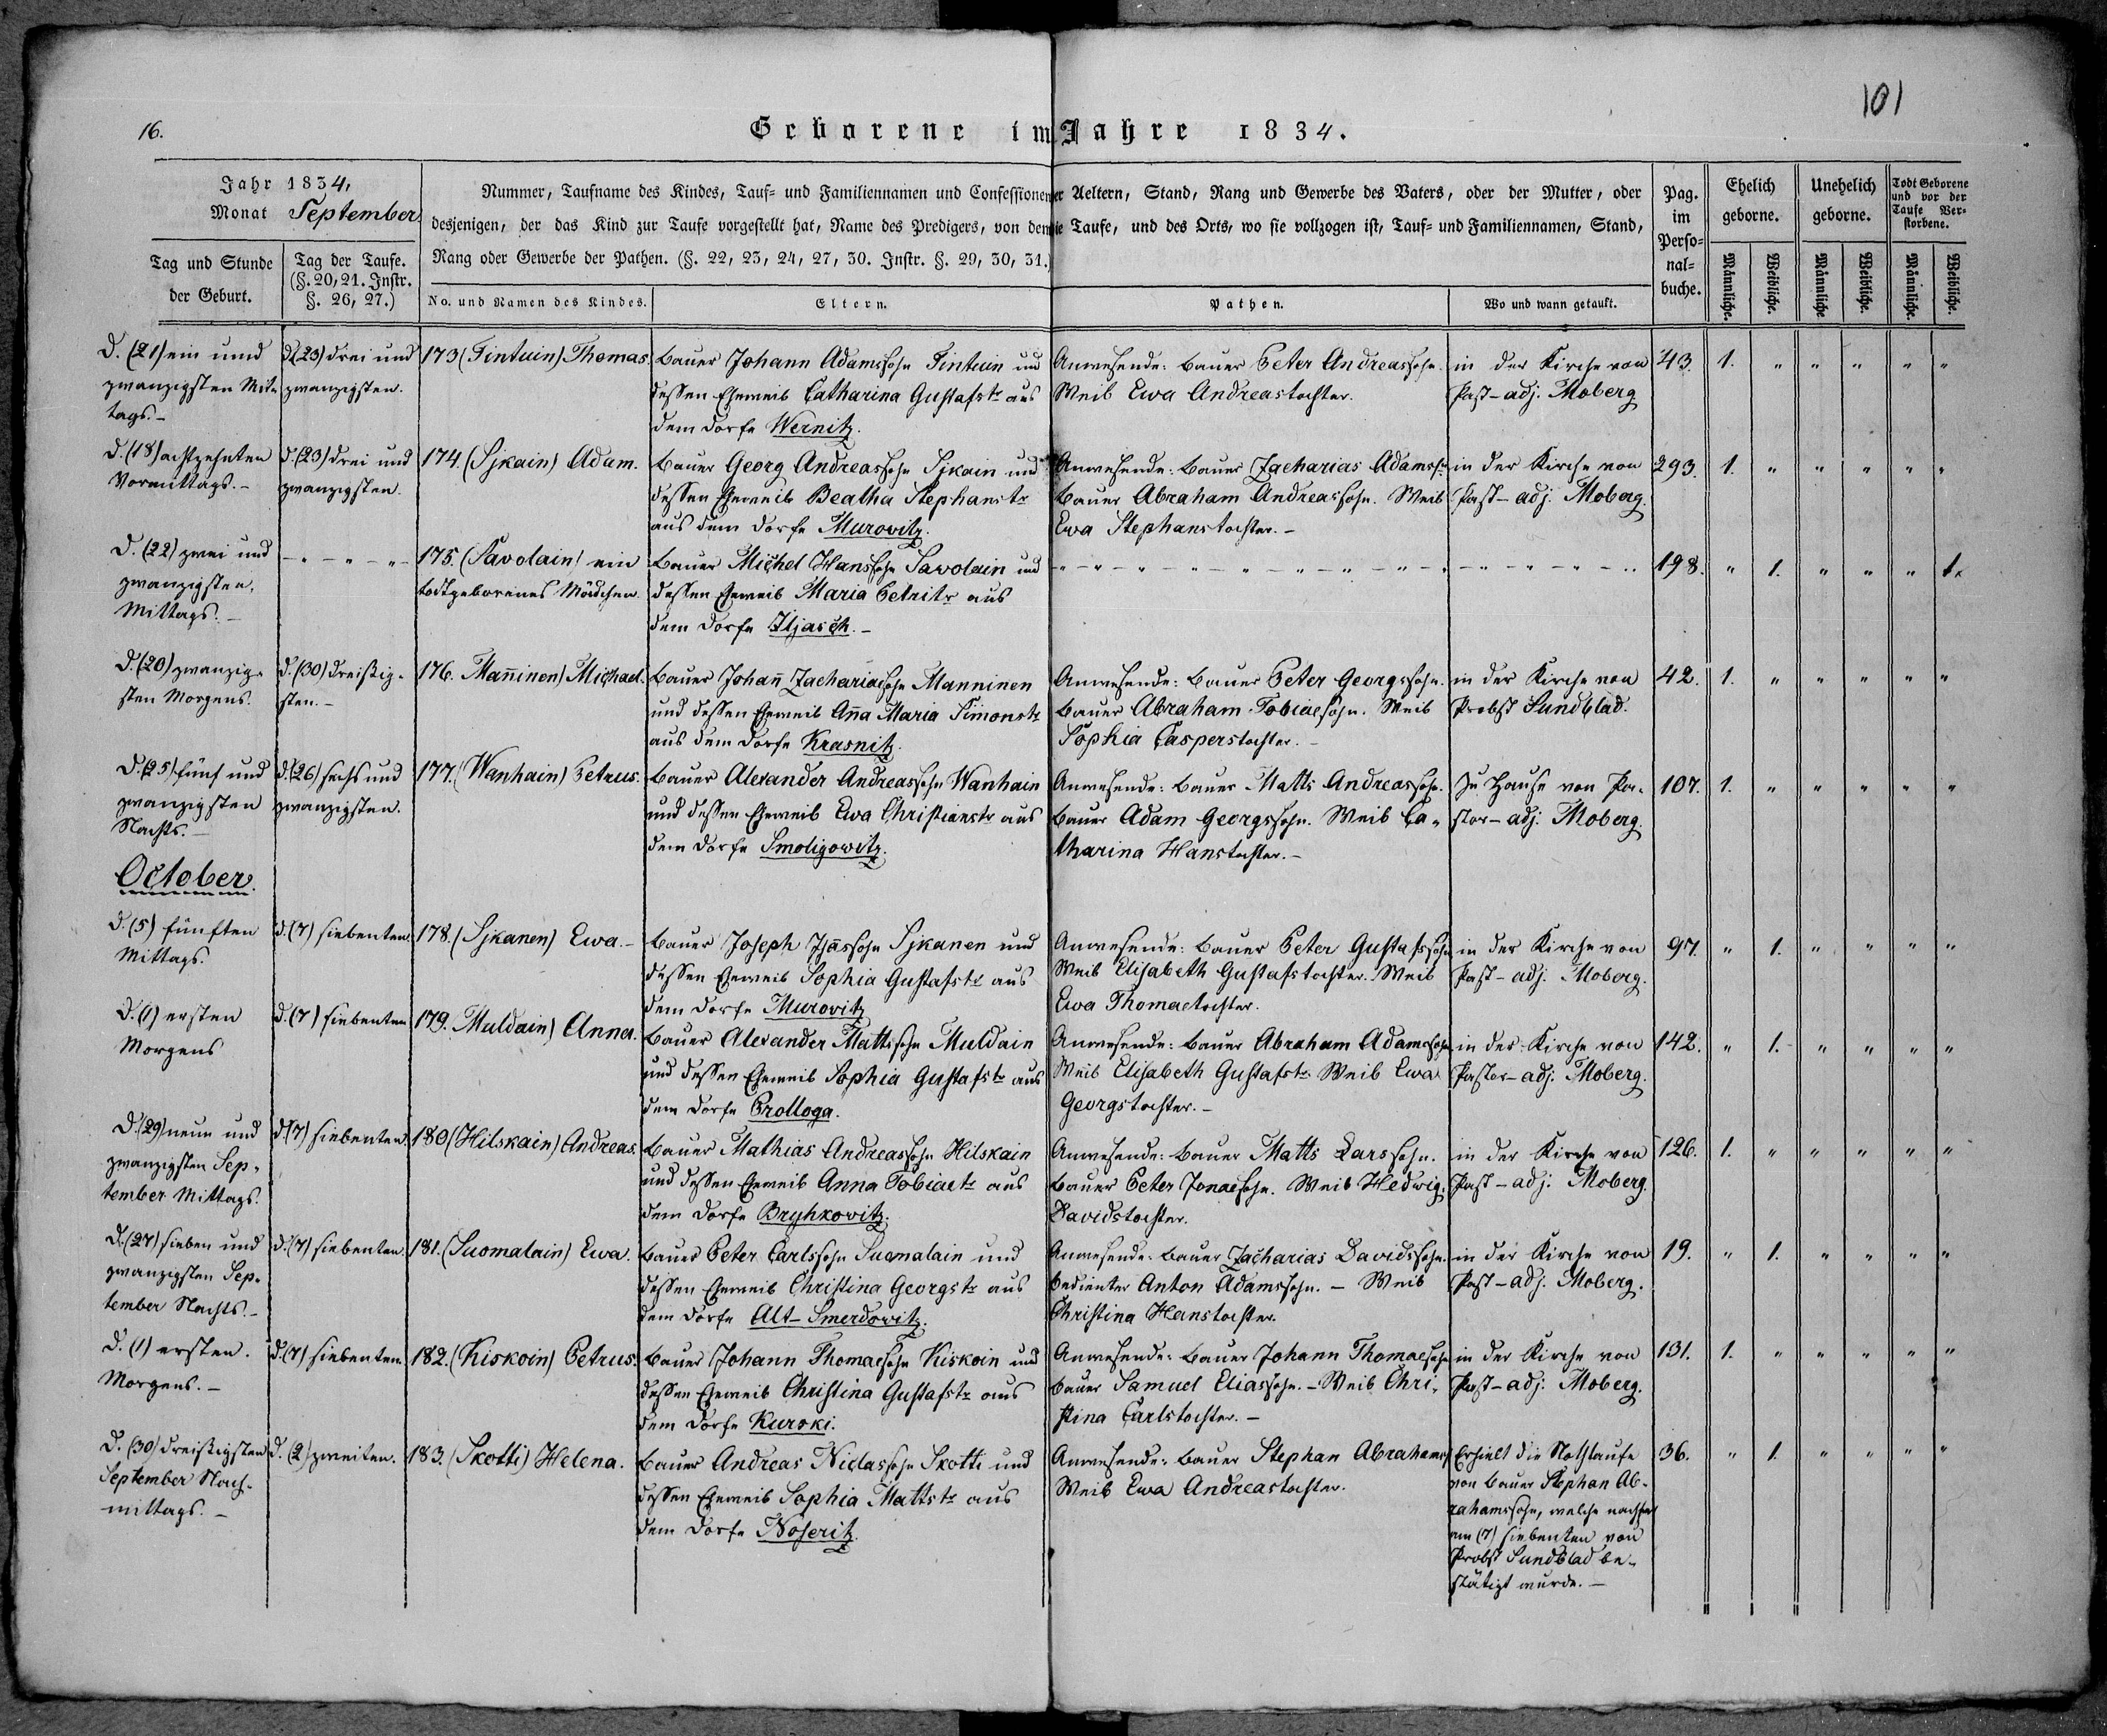 101
16.
Geborene im Jahre 1834.
Jahr 1834,
Monat September
Tag und Stunde
der Geburt.
Tag der Taufe.
(§. 20, 21. Instr.
§. 26, 27.)
Nummer, Taufname des Kindes, Tauf= und Familiennamen und Confessionen der Aeltern, Stand, Rang und Gewerbe des Vaters, oder der Mutter, oder
desjenigen, der das Kind zur Taufe vorgestellt hat, Name des Predigers, von dem die Taufe, und des Orts, wo sie vollzogen ist, Tauf= und Familiennamen, Stand,
Rang oder Gewerbe der Pathen. (§. 22, 23, 24, 27, 30. Instr. §. 29, 30, 31.)
No. und Namen des Kindes.
Eltern.
Pathen.
Wo und wann getauft.
Pag.
im
Perso=
nal=
buche.
Ehelich
geborne.
Unehelich
geborne.
Todt Geborene
und vor der
Taufe Ver=
storbene.
Männliche.
Weibliche.
Männliche.
Weibliche.
Männliche.
Weibliche.
D. (21) ein und
zwanzigsten Mit-
tags. -
d. (23) drei und
zwanzigsten.
173 (Tintuin) Thomas.
Bauer Johann Adamssohn Tintuin und
dessen Eheweib Catharina Gustafstr aus
dem Dorfe Wernitz.
Anwesende: Bauer Peter Andreassohn.
Weib Ewa Andreastochter.
in der Kirche von
Past-adj. Moberg
43. 1. " " " " "
d. (18) achtzehnten
Vormittags. -
d. (23) drei und
zwanzigsten.
174. (Sjkain) Adam.
Bauer Georg Andreassohn Sjkain und
dessen Eheweib Beatha Stephanstr
aus dem Dorfe Murowitz.
Anwesende: Bauer Zacharias Adamss.
Bauer Abraham Andreassohn. Weib
Ewa Stephanstochter. -
in der Kirche von
Past-adj. Moberg.
293. 1. " " " " "
d. (22) zwei und
zwanzigsten,
Mittags. -
- " - " - " - "
175. (Savolain) ein
todtgeborenes Mädchen.
Bauer Michel Hanssohn Savolain und
dessen Eheweib Maria Petritr aus
dem Dorfe Iljasch. -
198. " 1. " " " 1.
d. (20) zwanzig-
sten Morgens.
d. (30) dreißig-
sten. -
176. Mañinen) Michael.
Bauer Johañ Zachariaesohn Manninen
und dessen Eheweib Aña Maria Simonstr
aus dem Dorfe Krasnitz.
Anwesende: Bauer Peter Georgssohn.
Bauer Abraham Tobiaesohn. Weib
Sophia Casperstochter. -
in der Kirche von
Probst Sundblad.
42. 1. " " " " "
d. (25) fünf und
zwanzigsten
Nachts. -
d. (26) sechs und
zwanzigsten.
177. (Wanhain) Petrus.
Bauer Alexander Andreassohn Wanhain
und dessen Eheweib Ewa Christianstr aus
dem Dorfe Smoligowitz.
Anwesende: Bauer Matts Andreassohn.
Bauer Adam Georgssohn. Weib Ca-
tharina Hanstochter. -
Zu Hause von Pa-
stor-adj. Moberg.
107. 1. " " " " "
October.
d. (5) fünften
Mittags.
d. (7) siebenten.
178. (Sjkanen) Ewa. -
Bauer Joseph sohn Sjkanen und
dessen Eheweib Sophia Gustafstr aus
dem Dorfe Murovitz
Anwesende: Bauer Peter Gustafssohn
Weib Elisabeth Gustafstochter. Weib
Ewa Thomaetochter.
in der Kirche von
Past-adj. Moberg.
97. " 1. " " " "
d. (1) ersten
Morgens
d. (7) siebenten
179. Muldain) Anna.
Bauer Alexander Mattssohn Muldain
und dessen Eheweib Sophia Gustafstr aus
dem Dorfe Prolloga.
Anwesende: Bauer Abraham Adamssohn
Weib Elisabeth Gustafstr. Weib Ewa
Georgstochter. -
in der Kirche von
Pastor-adj. Moberg.
142. " 1. " " " "
d. (29) neun und
zwanzigsten Sep-
tember Mittags.
d. (7) siebenten.
180 (Hilskain) Andreas.
Bauer Mathias Andreassohn Hilskain
und dessen Eheweib Anna Tobiaetr aus
dem Dorfe Bryhkowitz.
Anwesende: Bauer Matts Larssohn.
Bauer Peter Jonaesohn. Weib Hedwig
Davidstochter.
in der Kirche von
Past-adj. Moberg.
126. 1. " " " " "
d. (27) sieben und
zwanzigsten Sep-
tember Nachts. -
d. (7) siebenten.
181. (Suomalain) Ewa.
Bauer Peter Carlssohn Suomalain und
dessen Eheweib Christina Georgstr aus
dem Dorfe Alt-Smerdowitz.
Anwesende: Bauer Zacharias Davidssohn.
Bedienter Anton Adamssohn. - Weib
Christina Hanstochter.
in der Kirche von
Past-adj. Moberg.
19. " 1. " " " "
d. (1) ersten.
Morgens. -
d. (7) siebenten.
182. (Kiskoin) Petrus.
Bauer Johann Thomaesohn Kiskoin und
dessen Eheweib Christina Gustafstr aus
dem Dorfe Kurski.
Anwesende: Bauer Johann Thomaesohn
Bauer Samuel Eliassohn. - Weib Chri-
stina Carlstochter. -
in der Kirche von
Past-adj. Moberg.
131. 1. " " " " "
d. (30) dreißigsten
September Nach-
mittags. -
d. (2) zweiten.
183. (Skotti) Helena.
Bauer Andreas Niclassohn Skotti und
dessen Eheweib Sophia Mattstr aus
dem Dorfe Noseritz.
Anwesende: Bauer Stephan Abrahamss
Weib Ewa Andreastochter.
Erhielt die Nothtaufe
von Bauer Stephan Ab-
rahamssohn, welche nachher
am (7) siebenten von
Probst Sundblad be-
stätigt wurde. -
36. " 1. " " " "